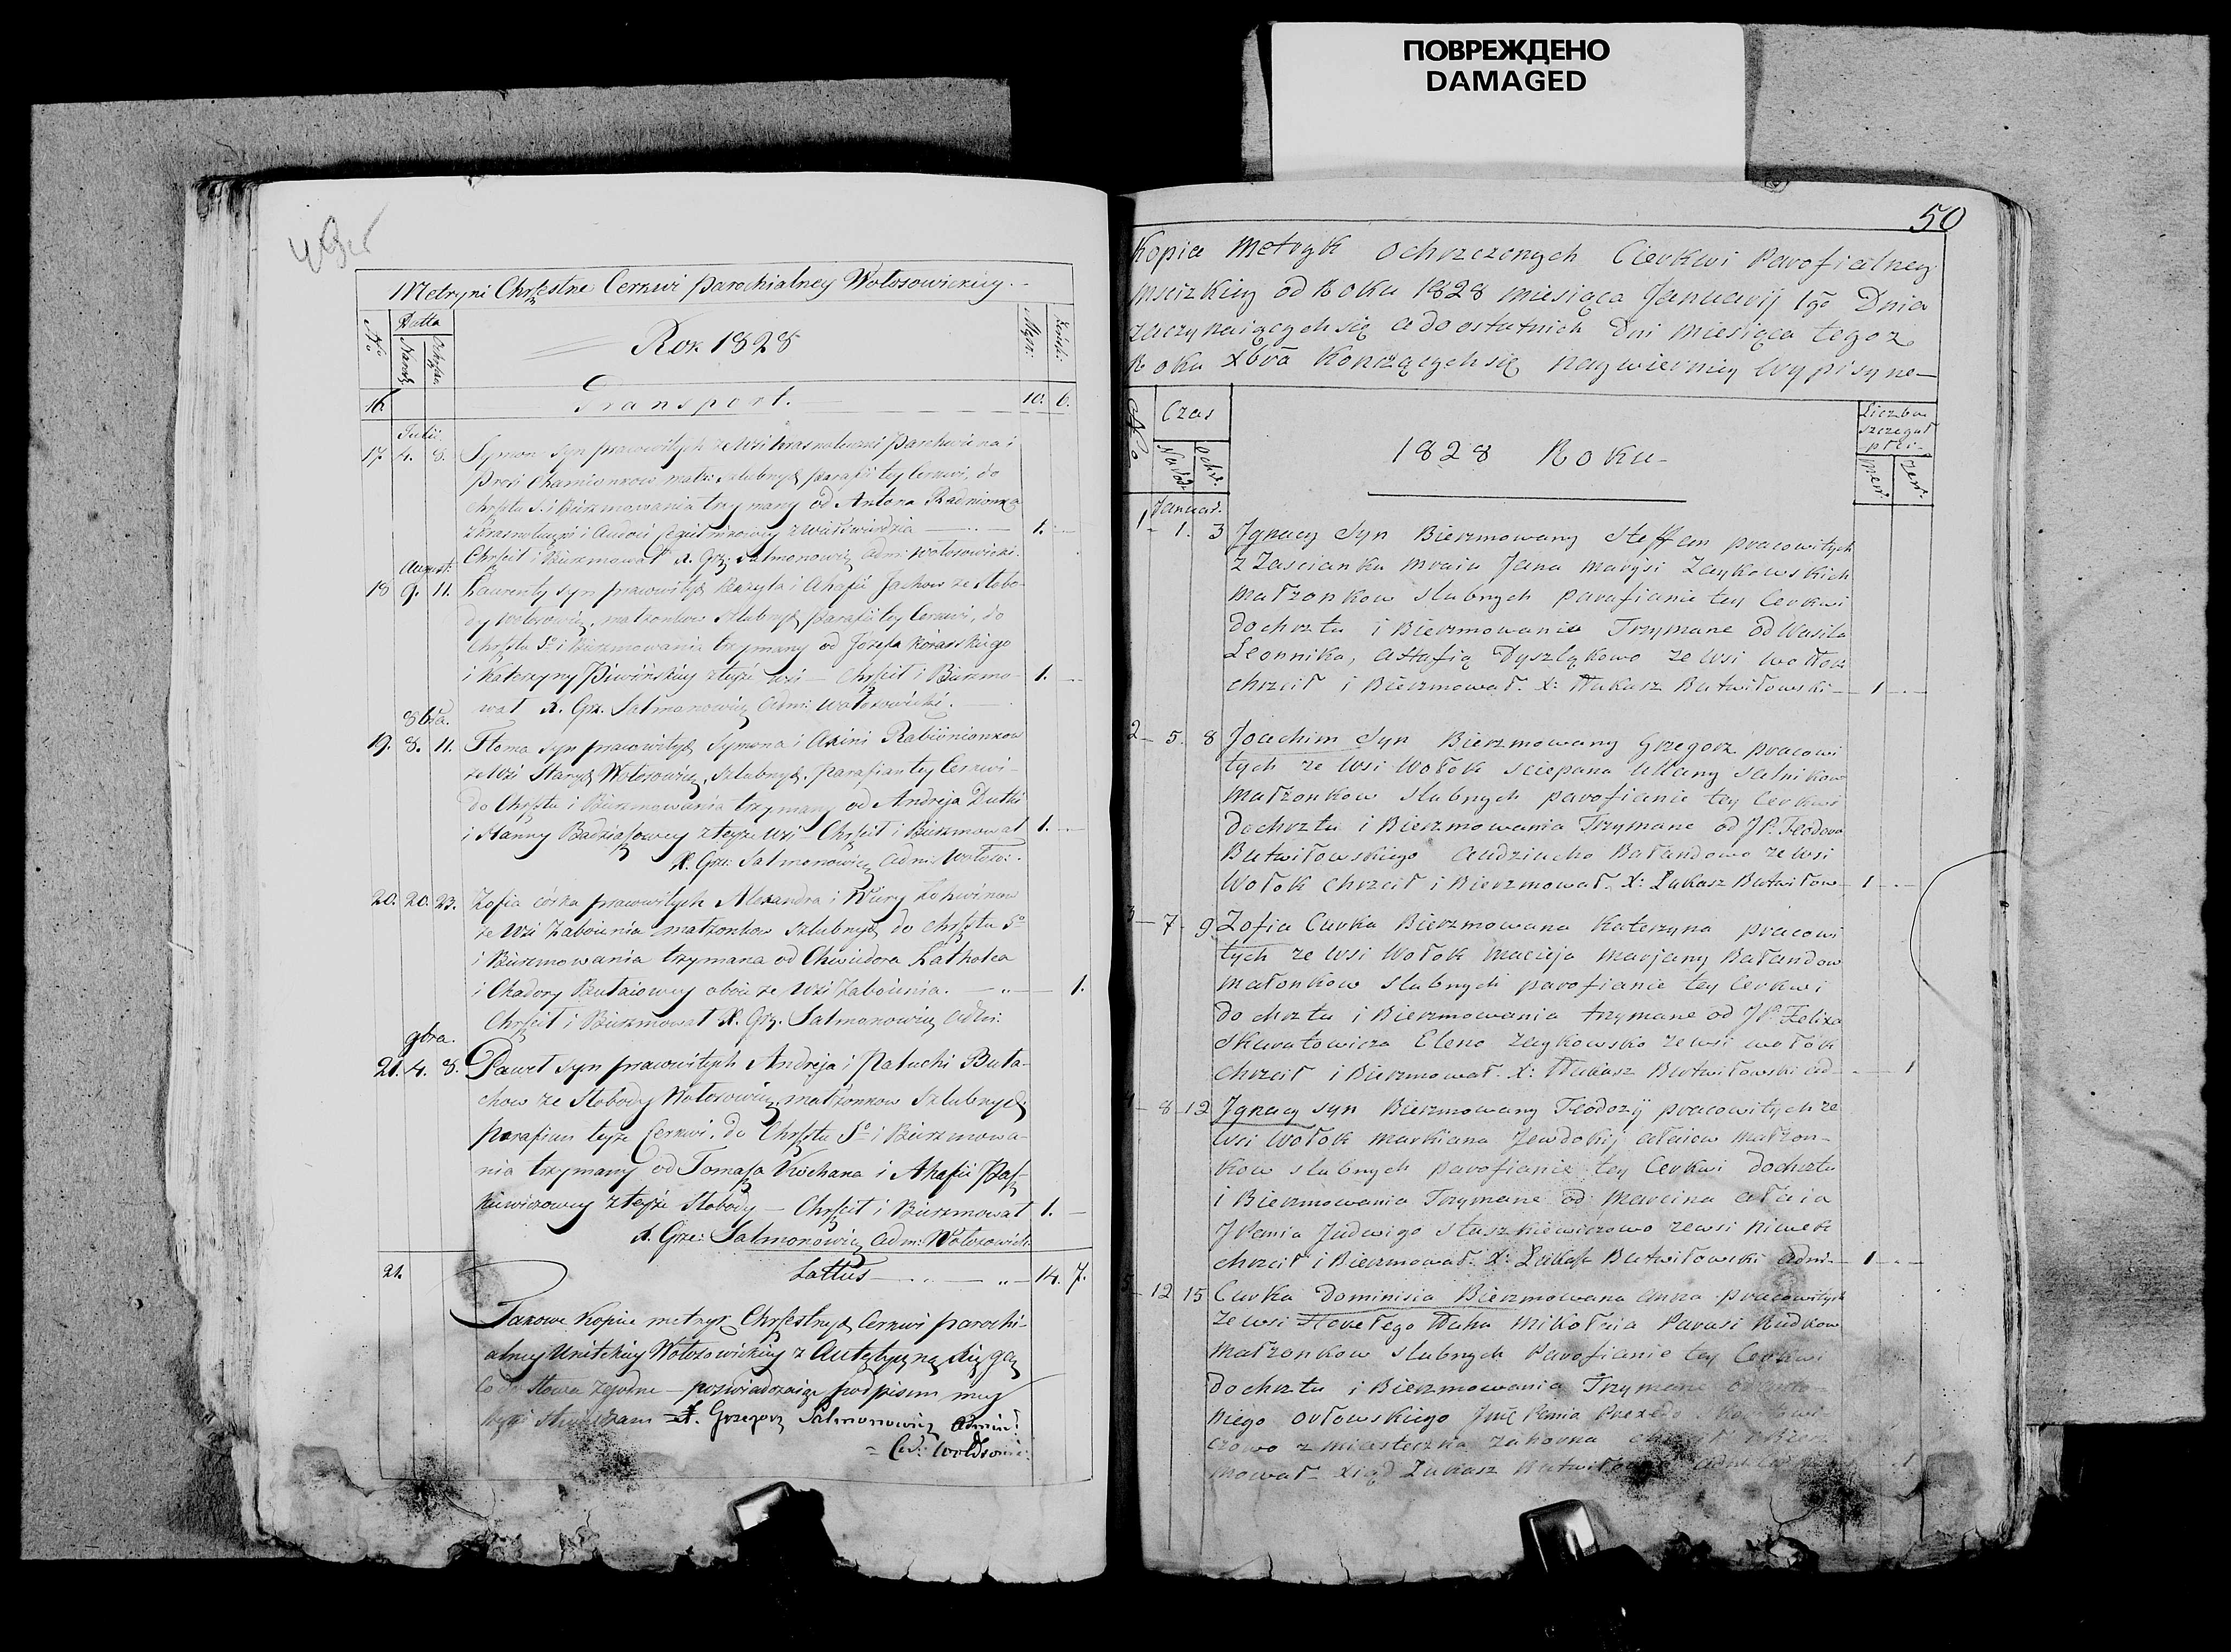 ПОВРЕЖДЕНО
DAMAGED
Metryki Chrzestne Cerkwi Parochialney Wołosowickiey.
No. Datta Narodz. Ochrzcz.
Rok 1828
Męzc: Żeńsk:
16. Transport. 10. 6.
Julii.
17. 4. 8. Symon syn pracowitych ze Wsi Krasnoluczki Parchwiena i
Prośi Chamionkow małż: szlubnych parafii tey Cerkwi, do
Chrztu S. i Bierzmowania trzymany od Antona Radnionka
z Krasnoluczki i 1.
Chrzcił i Bierzmował X. Grz: Salmonowicz Adm: Wołosowicki.
August.
18 9. 11. Laurenty syn pracowitych i Ahafii ze Słobo-
dy Wołosowicz, małżonkow szlubnych parafii tey Cerkwi, do
Chrztu So i Bierzmowania trzymany od Józefa
i Katerzyny z teyże wsi — Chrzcił i Bierzmo- 1.
wał X. Grz. Salmonowicz Adm: Wołosowicki.
8bra.
19. 8. 11. Thoma syn pracowitych Symona i Axini Rabionionkow
ze Wsi Starych Wołosowicz, szlubnych, parafian tey Cerkwi
do Chrztu i Bierzmowania trzymany od Andreja Dutki
i Hanny z teyże wsi Chrzcił i Bierzmował 1.
X. Grz: Salmonowicz Adm: Wołoso:.
20. 20. 23. Zofia córka pracowitych Alexandra i
ze Wsi Zaboienia małżonkow szlubnych do Chrztu So
i Bierzmowania trzymana od Chwiedora
i Chadory oboie ze Wsi Zaboienia. 1.
Chrzcił i Bierzmował X. Grz. Salmonowicz Adm:
9bra.
21. 4. 8. Paweł syn pracowitych Andreja i Pałuchi Buła-
chow ze Słobody Wołosowicz, małżonkow szlubnych
Parafian teyże Cerkwi, do Chrztu So i Bierzmowa-
nia trzymany od Tomasza Kochana i Ahafii
z teyże Słobody — Chrzcił i Bierzmował 1.
X. Grze: Salmonowicz Adm: Wołosowick:
21. Lattus 14. 7.
Takowe Kopiie metryk Chrzestnych Cerkwi parochi-
alney Unitskiey Wołosowickiey z Autętyczną Xięgą
Co do słowa zgodne — poświadczaiąc podpisem mey
ręki X. Grzegorz Salmonowicz Admin:
50
Kopia Metryk Ochrzczonych Cierkwi Parofialney
Msciżkiey od Roku 1828 miesiąca Januarij 1go Dnia
zaczynaiących się a do ostatnich Dni miesiąca tegoż
Roku Xbra Konczących się naywierniey wypisyne
No Czas Narodz. Ochrz.
1828 Roku
Liczba szczegul płci Męs. Żeń.
Januar.
1 1. 3 Jgnacy Syn Bierzmowany Steffan pracowitych
z Zascianku Mraiu Jana Marysi Zaykowskich
Małżonkow slubnych parafianie tey Cerkwi
do chrztu i Bierzmowania Trzymane od Wasila
Leonnika, Astafią Dyszlękowo ze wsi Wołok
chrzcił i Bierzmował. X: Łukasz Butwiłowski 1
2 5. 8 Joachim Syn Bierzmowany Grzegorz pracowi
tych ze wsi Wołok Sciepana Ullany Salnikow
Małżonkow slubnych parofianie tey Cerkwi
do chrztu i Bierzmowania Trzymane od JP. Teodora
Butwiłowskiego Audziucho Bałandowo ze wsi
Wołok chrzcił i Bierzmował. X: Łukasz Butwiłow 1
3 7. 9 Zofia Curka Bierzmowana Katerzyna pracowi
tych ze wsi Wołok Macieja Marjany Bałandow
Małonkow slubnych parofianie tey Cerkwi
do chrztu i Bierzmowania trzymane od JP. Felixa
Skuratowicza Eleno Zaykowsko ze wsi Wołok
chrzcił i Bierzmował. X: Łukasz Butwiłowski ad 1
4 8 12 Jgnacy syn Bierzmowany Teodozij pracowitych ze
wsi Wołok Markiana Jewdokij Ałaiow Małżon-
kow slubnych parofianie tey Cerkwi do chrztu
i Bierzmowania Trzymane od Marcina Ałaia
JPania Judwigo Słuszkiewiczowo ze wsi
chrzcił i Bierzmował. X: Łukasz Butwiłowski Admi 1
5 12 15 Curka Dominisia Bierzmowana Anna pracowitych
ze wsi Mikołaia Parasi Rudkow
Małżonkow slubnych Parofianie tey Cerkwi
do chrztu i Bierzmowania Trzymane od Anto-
niego Orłowskiego Jmę Pania
z miasteczka
mował Xiąd Łukasz 1